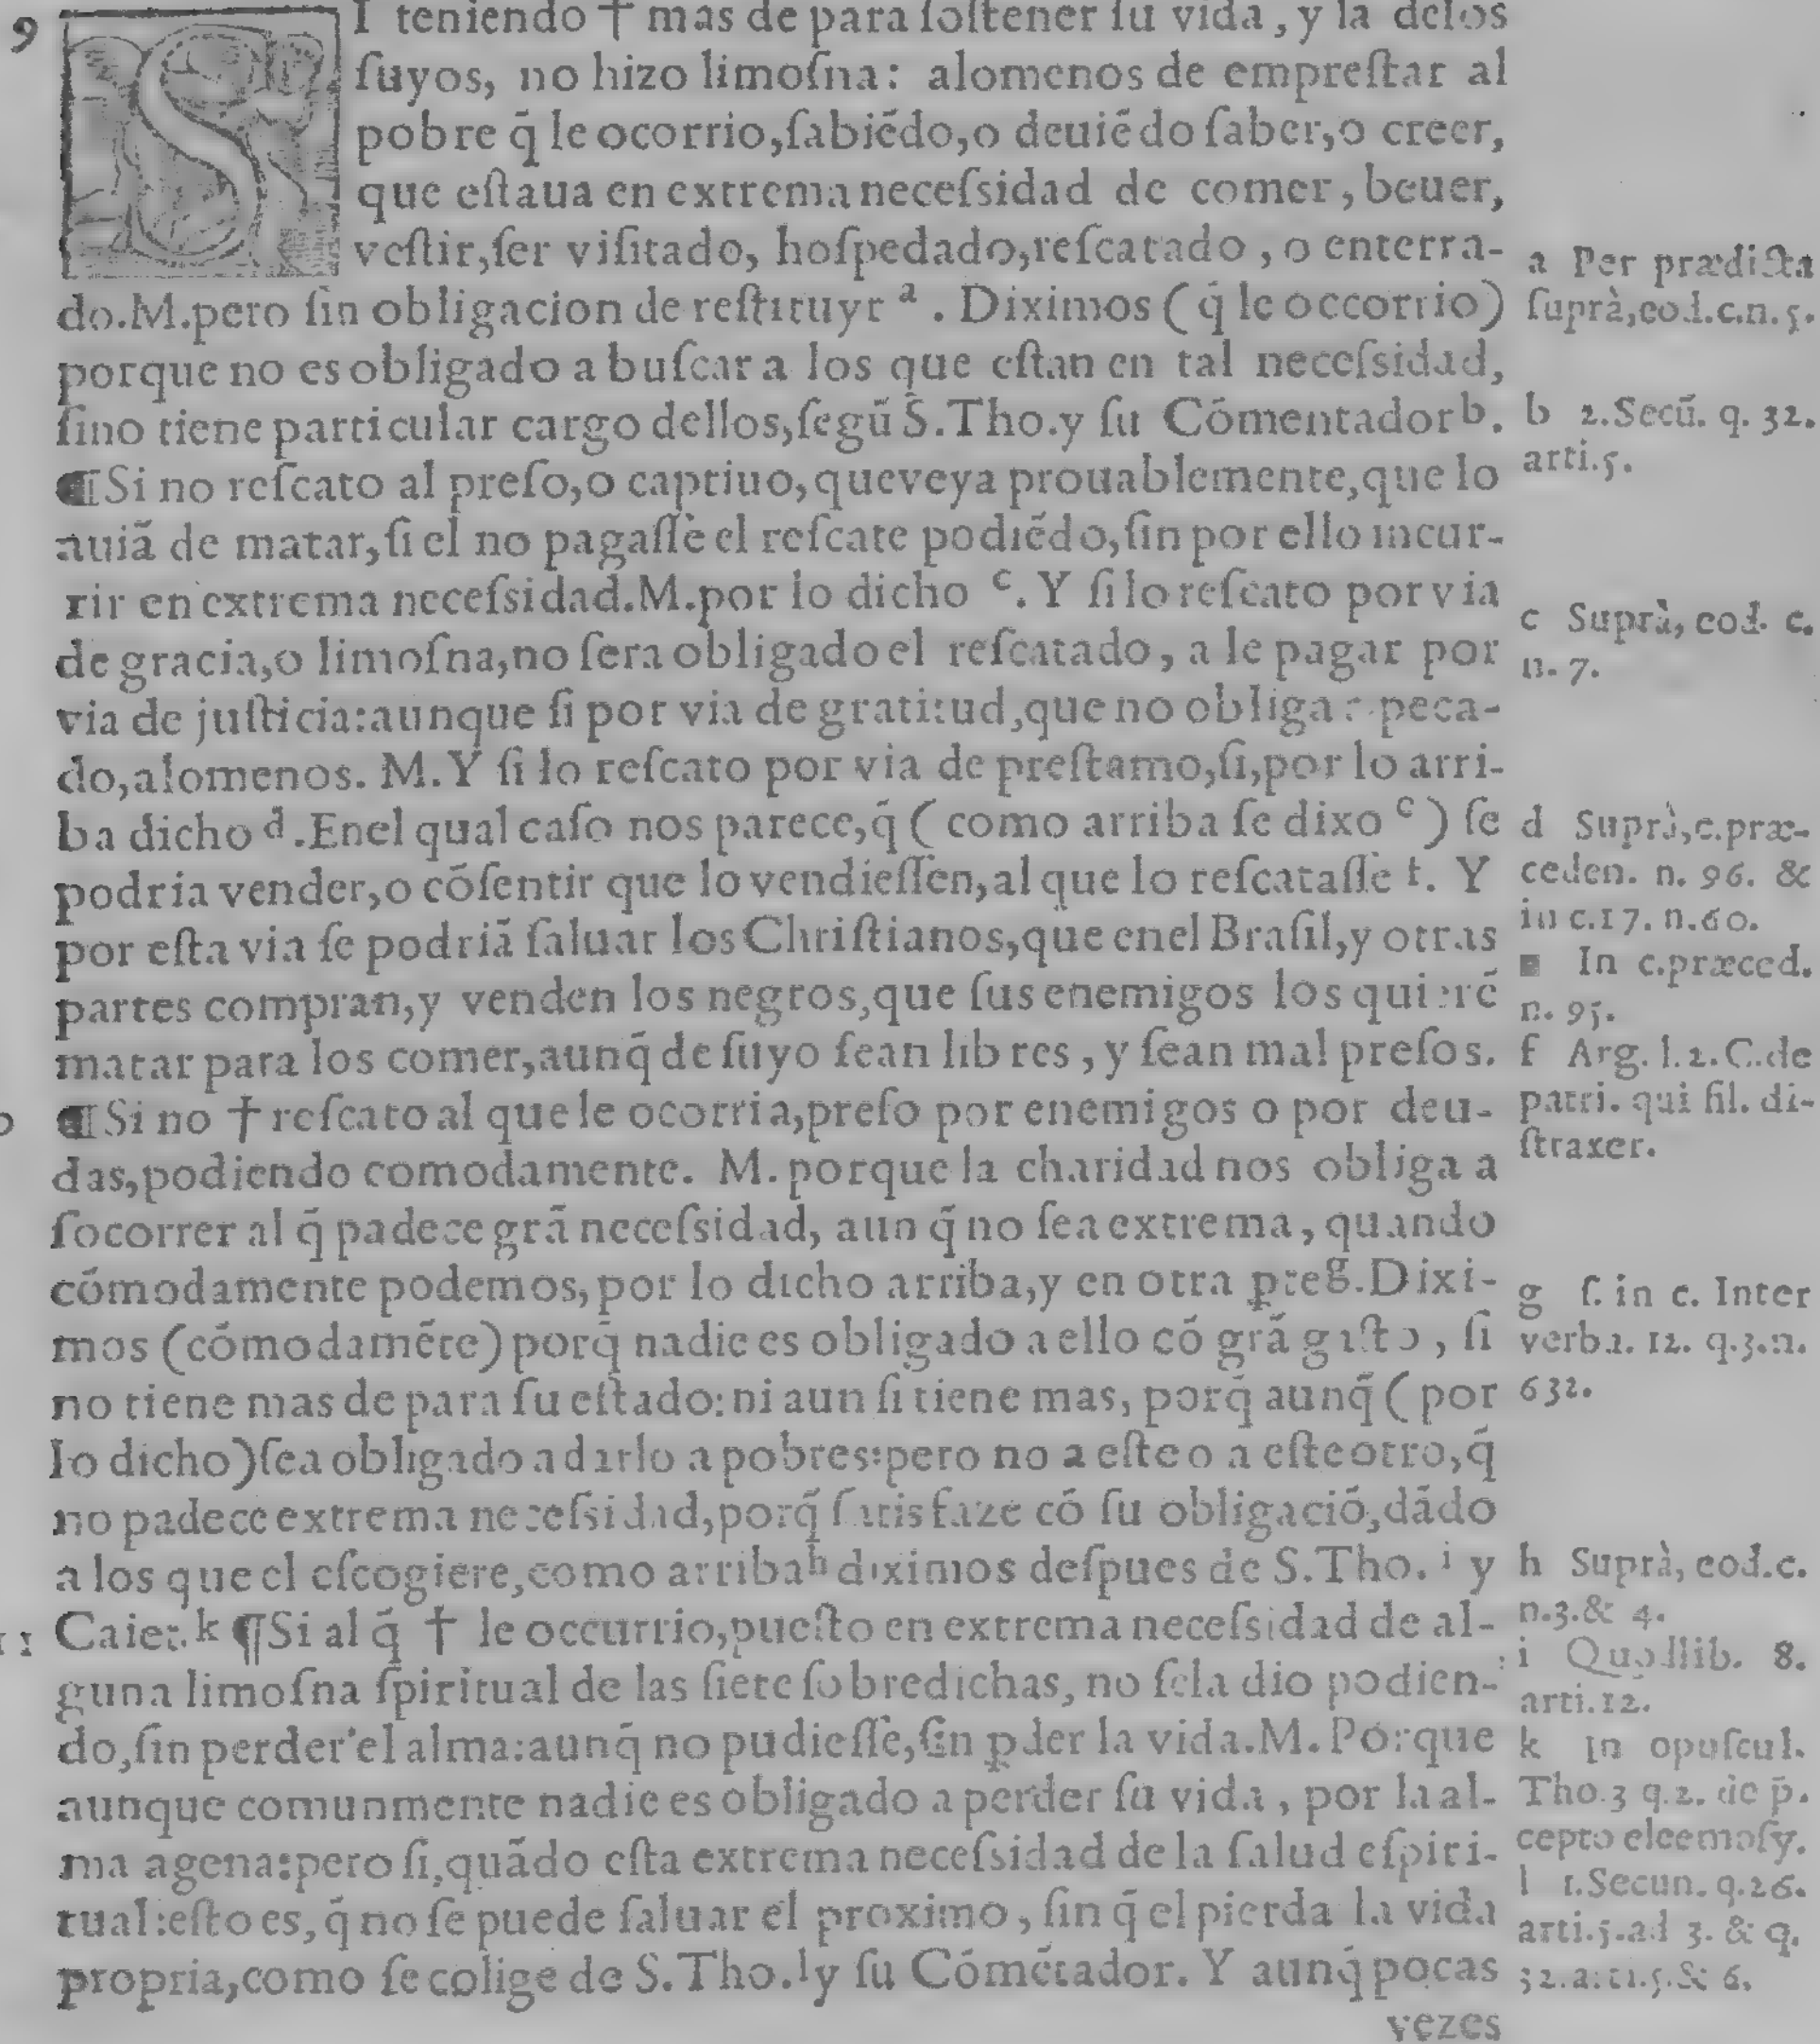 9
SI teniendo † mas de para ſoſtener ſu vida, y la delos
ſuyos, no hizo limoſna: alomenos de empreſtar al
pobre q̃ le ocorrio, ſabiẽdo, o deuiẽdo ſaber, o creer,
que eſtaua en extrema neceſsidad de comer, beuer,
veſtir, ſer viſitado, hoſpedado, reſcatado, o enterra-
do. M. pero ſin obligacion de reſtituyr ᵃ. Diximos (q̃ le occorrio)
porque no es obligado a buſcar a los que eſtan en tal neceſsidad,
ſino tiene particular cargo dellos, ſegũ S. Tho. y ſu Cõmentador ᵇ.
¶ Si no reſcato al preſo, o captiuo, que veya prouablemente, que lo
auiã de matar, ſi el no pagaſſe el reſcate podiẽdo, ſin por ello incur-
rir en extrema neceſsidad. M. por lo dicho ᶜ. Y ſi lo reſcato por via
de gracia, o limoſna, no ſera obligado el reſcatado, a le pagar por
via de juſticia: aunque ſi por via de gratitud, que no obliga a peca-
do, alomenos. M. Y ſi lo reſcato por via de preſtamo, ſi, por lo arri-
ba dicho ᵈ. Enel qual caſo nos parece, q̃ (como arriba ſe dixo ᵉ) ſe
podria vender, o cõſentir que lo vendieſſen, al que lo reſcataſſe ᶠ. Y
por eſta via ſe podriã ſaluar los Chriſtianos, que enel Braſil, y otras
partes compran, y venden los negros, que ſus enemigos los quierẽ
matar para los comer, aunq̃ de ſuyo ſean libres, y ſean mal preſos.
¶ Si no † reſcato al que le ocorria, preſo por enemigos o por deu-
das, podiendo comodamente. M. porque la charidad nos obliga a
ſocorrer al q̃ padece grã neceſsidad, aun q̃ no ſea extrema, quando
cõmodamente podemos, por lo dicho arriba, y en otra ᵍ. Dixi-
mos (cõmodamẽte) porq̃ nadie es obligado a ello cõ grã gaſto, ſi
no tiene mas de para ſu eſtado: ni aun ſi tiene mas, porq̃ aunq̃ (por
lo dicho) ſea obligado a darlo a pobres: pero no a eſte o a eſte otro, q̃
no padece extrema neceſsidad, porq̃ ſatisfaze cõ ſu obligaciõ, dãdo
a los que el eſcogiere, como arriba ʰ diximos deſpues de S. Tho. ⁱ y
11 Caiet. ᵏ ¶ Si al q̃ † le occurrio, pueſto en extrema neceſsidad de al-
guna limoſna ſpiritual de las ſiete ſobredichas, no ſela dio podien-
do, ſin perder el alma: aunq̃ no pudieſſe, ſin ꝑder la vida. M. Porque
aunque comunmente nadie es obligado a perder ſu vida, por la al-
ma agena: pero ſi, quãdo eſta extrema neceſsidad de la ſalud eſpiri-
tual: eſto es, q̃ no ſe puede ſaluar el proximo, ſin q̃ el pierda la vida
propria, como ſe colige de S. Tho. ˡ y ſu Cõmẽtador. Y aunq̃ pocas
vezes
a Per prædicta
ſuprà, eod. c. n. 5.
b 2. Secũ. q. 32.
arti. 5.
c Suprà, eod. c.
n. 7.
d Suprà, c. præ-
ceden. n. 96. &
in c. 17. n. 60.
In c. præced.
n. 95.
f Arg. l. 2. C. de
patri. qui fil. di-
ſtraxer.
g ſ. in c. Inter
verba. 12. q. 3. n.
632.
h Suprà, eod. c.
n. 3. & 4.
i Quodlib. 8.
arti. 12.
k In opuſcul.
Tho. 3 q. 2. de p̃.
cepto eleemoſy.
l 1. Secun. q. 26.
arti. 5. ad 3. & q.
32. arti. 5. & 6.